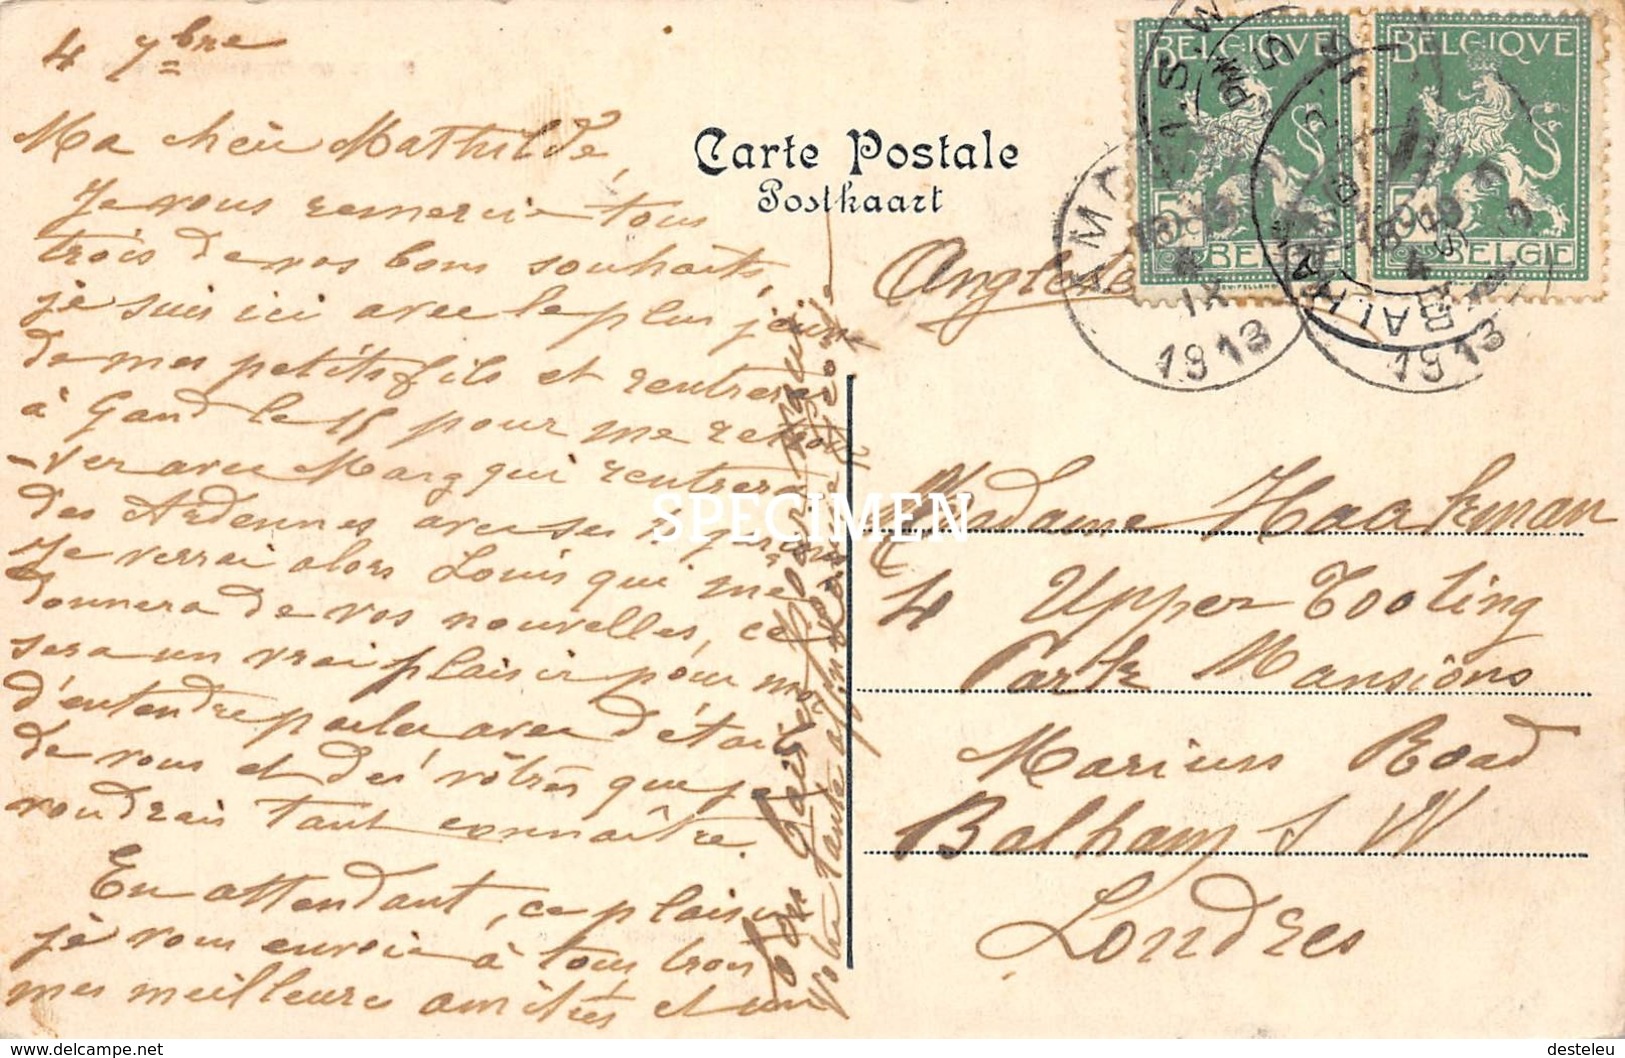 4 7bre
Ma chère Mathilde,
Je vous remercie tous
trois de vos bons souhaits,
je suis ici avec le plus jeune
de mes petits fils et rentrerai
à Gand le 15 pour me retrou
-ver avec Marg qui rentrera
des Ardennes avec ses
Je verrai alors Louis qui me
donnera de vos nouvelles, ce
sera un vrai plaisir pour moi
d'entendre parler avec détails
de vous et des vôtres que je
voudrais tant connaître.
En attendant, ce plaisir
je vous envoie à tous trois
mes meilleures amitiés et un
bon baiser pour vous
Votre tante affectionnée
Carte Postale
Postkaart
Angleterre
BELGIQVE
BELGIQVE
5
5
BELGIE
BELGIE
BALHAM
S.W
PM
5
4
IX
1913
4
1913
Madame Haakman
4 Upper Tooting
Park Mansions
Marius Road
Balham S W
Londres
SPECIMEN
delcampe.net
desteleu